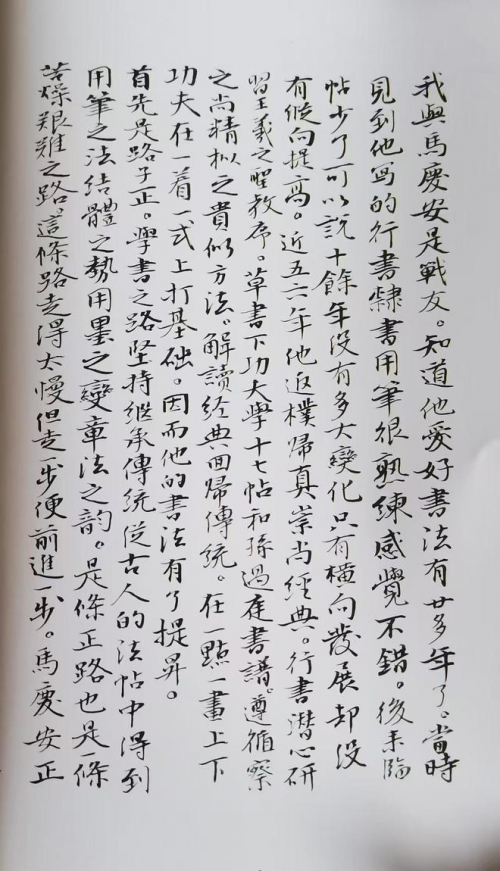 我與馬慶安是戰友。知道他愛好書法有廿多年了。當時
見到他寫的行書隸書用筆很熟練感覺不錯。後来臨
帖少了可以說十餘年没有多大變化只有橫向發展却没
有縱向提高。近五六年他返樸歸真崇尚經典。行書潜心研
習王羲之聖教序。草書下功夫學十七帖和孫過庭書譜。遵循察
之尚精拟之貴似方法。解讀經典回歸傳統。在一點一畫上下
功夫在一着一式上打基础。因而他的書法有了提昇。
首先是路子正。學書之路坚持继承傳統從古人的法帖中得到
用筆之法结體之勢用墨之變章法之韵。是條正路也是一條
苦燥艱難之路。這條路走得太慢但走一步便前進一步。馬慶安正